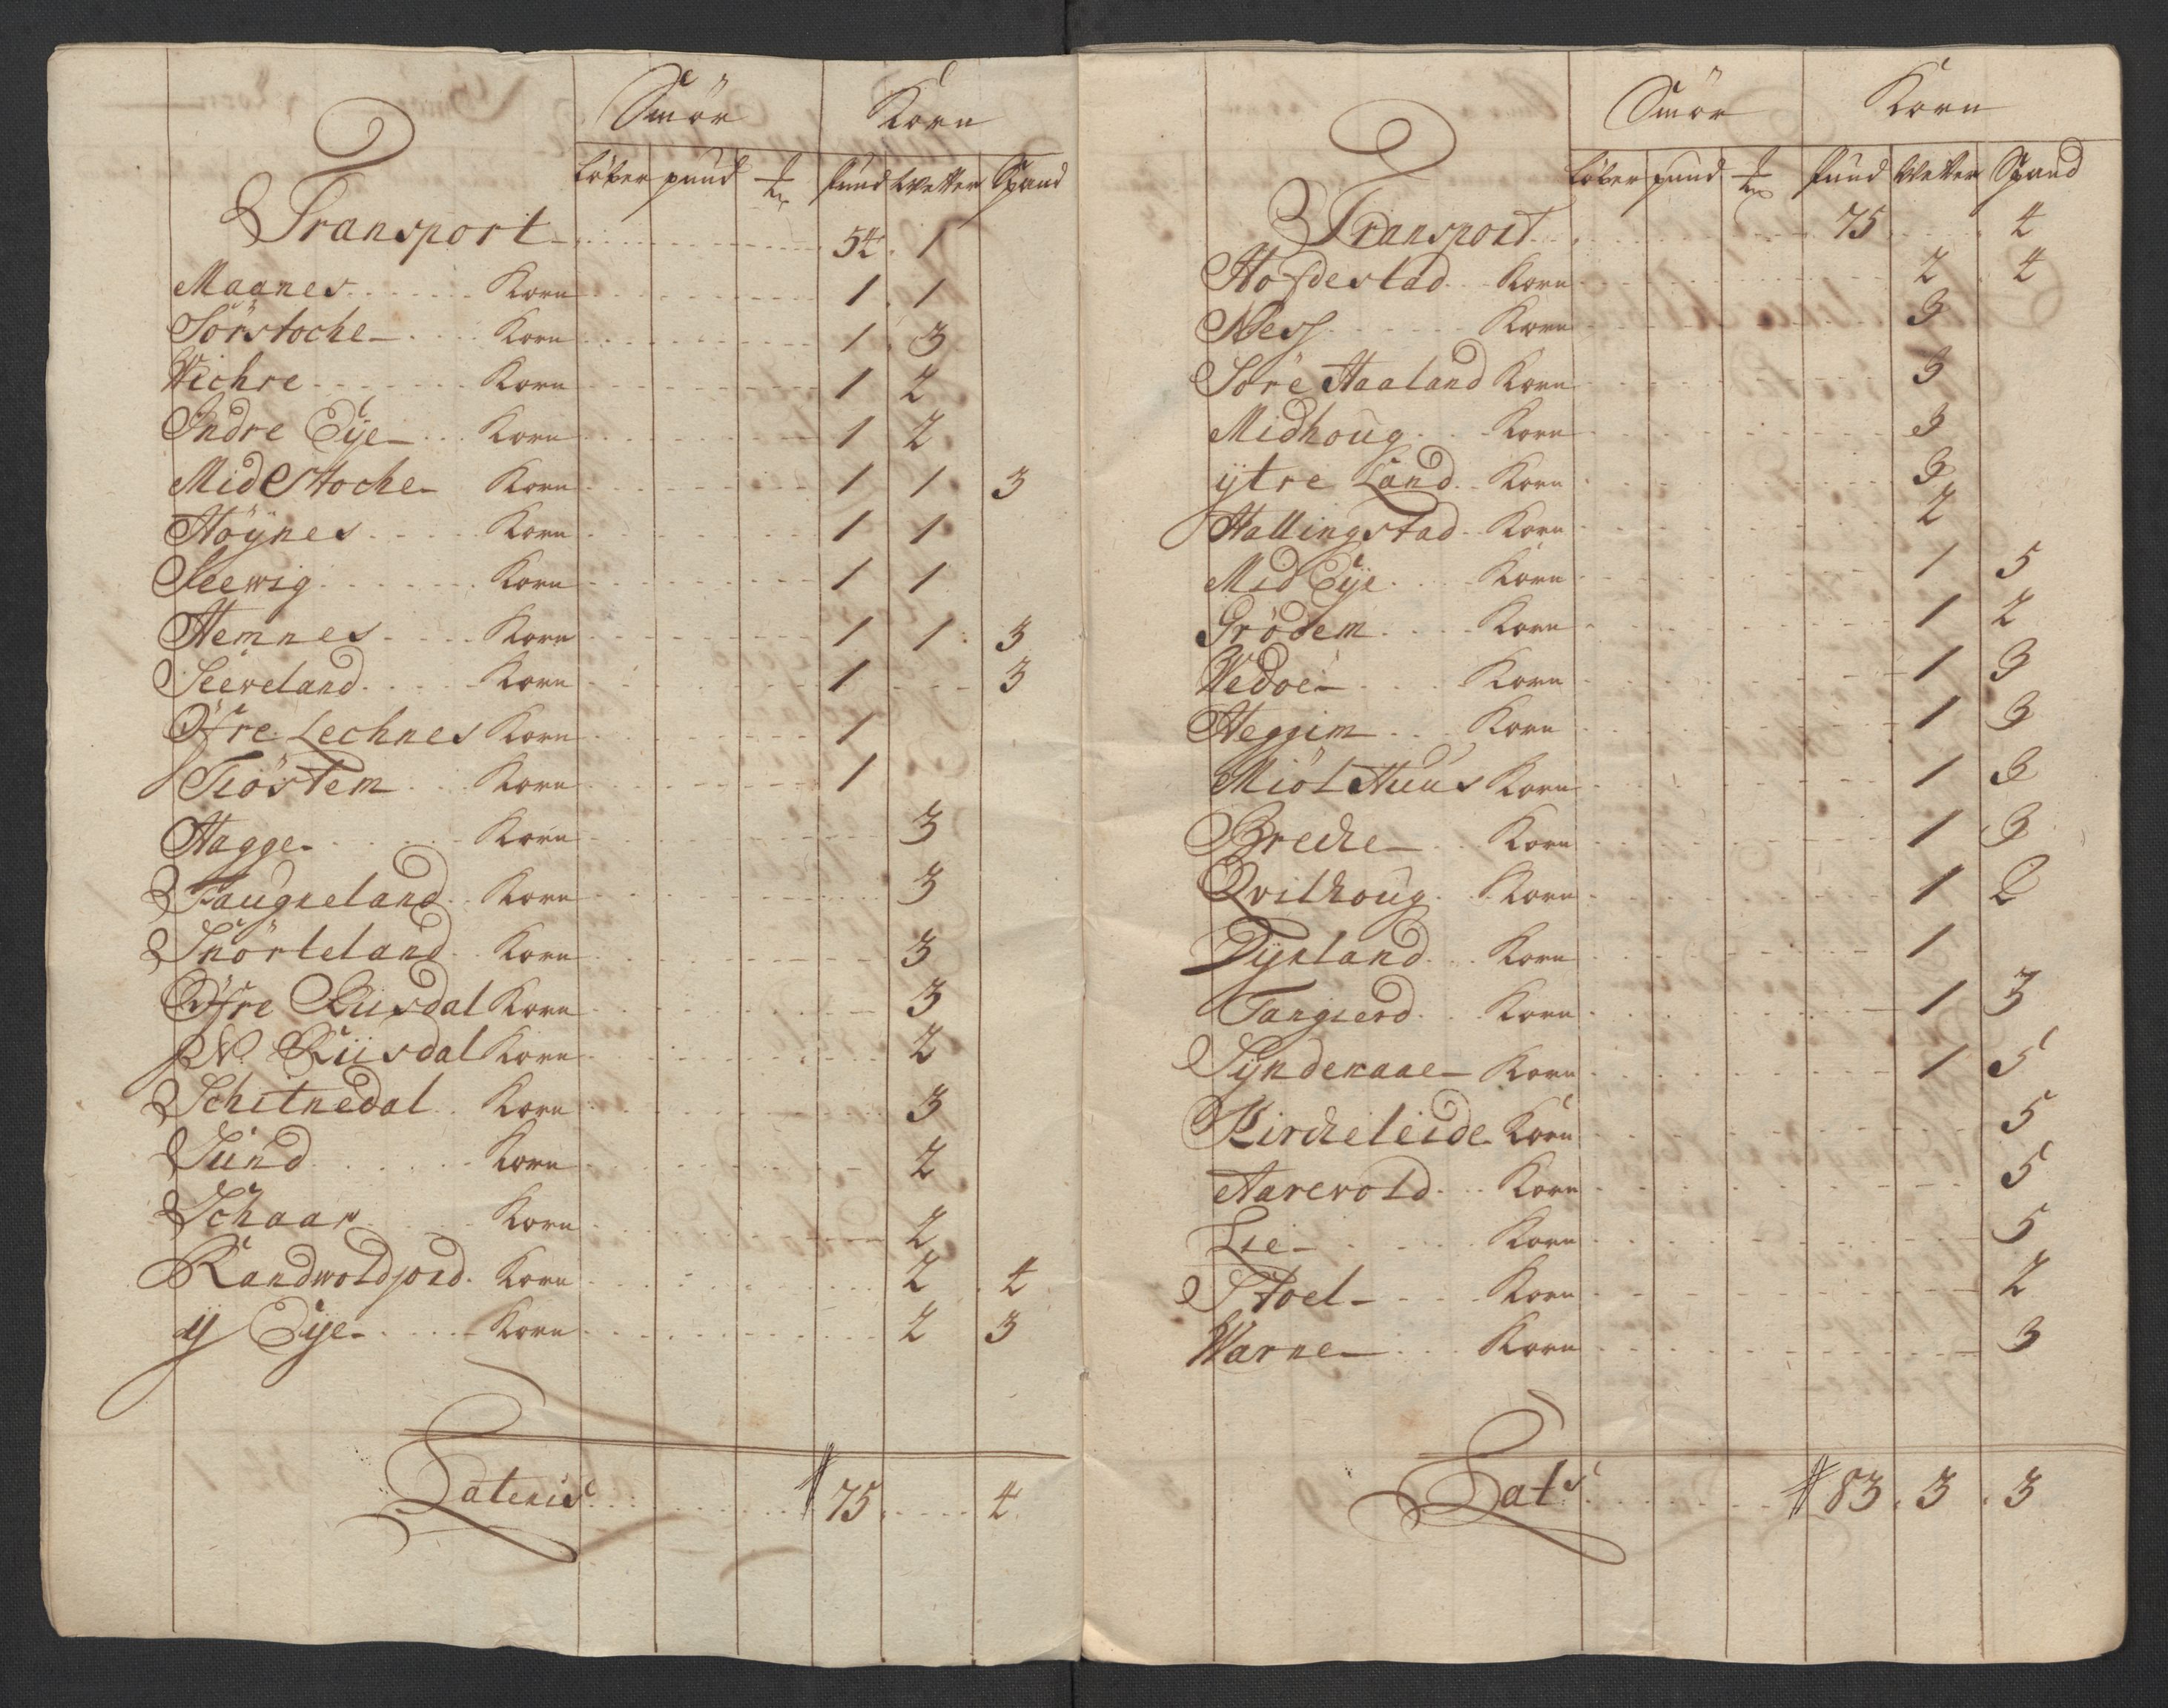 Smör Korn
Löber pund ℔ Pund Wetter Spand
Transport 54 1
Maanes Korn 1 1
Sörstoche Korn 1 3
Wichre Korn 1 2
Indre Öÿe Korn 1 2
Mid Stoche Korn 1 1 3
Höÿnes Korn 1 1
Seewig Korn 1 1
Hemnes Korn 1 1 3
Seeveland Korn 1 3
Öfre Lechnes Korn 1
Tiöstem Korn 1
Hagge Korn 3
Faugneland Korn 3
Snörteland Korn 3
Öfre Riisdal Korn 3
N. Riisdal Korn 2
Schitnedal Korn 3
Sund Korn 2
Schaar Korn 2
Randwoldjord Korn 2 4
ÿ Öÿe Korn 2 3
Lateris 75 4
Smör Korn
Löber pund ℔ Pund Wetter Spand
Transport 75 4
Hofdestad Korn 2 4
Ness Korn 3
Söre Haaland Korn 3
Midhoug Korn 3
ÿtre Land Korn 3
Hallingstad Korn 2
Mid Öÿe Korn 1 5
Grödem Korn 1 2
Wedöe Korn 1 3
Heggim Korn 1 3
Miöl Huus Korn 1 3
Breche Korn 1 3
Qvilhoug Korn 1 2
Dÿrland Korn 1
Tangierd Korn 1 3
Sÿndenaae Korn 1 5
Kircheleide Korn 5
Aarevold Korn 5
Lie Korn 5
Stoel Korn 2
Warne Korn 3
Lats 83 3 3